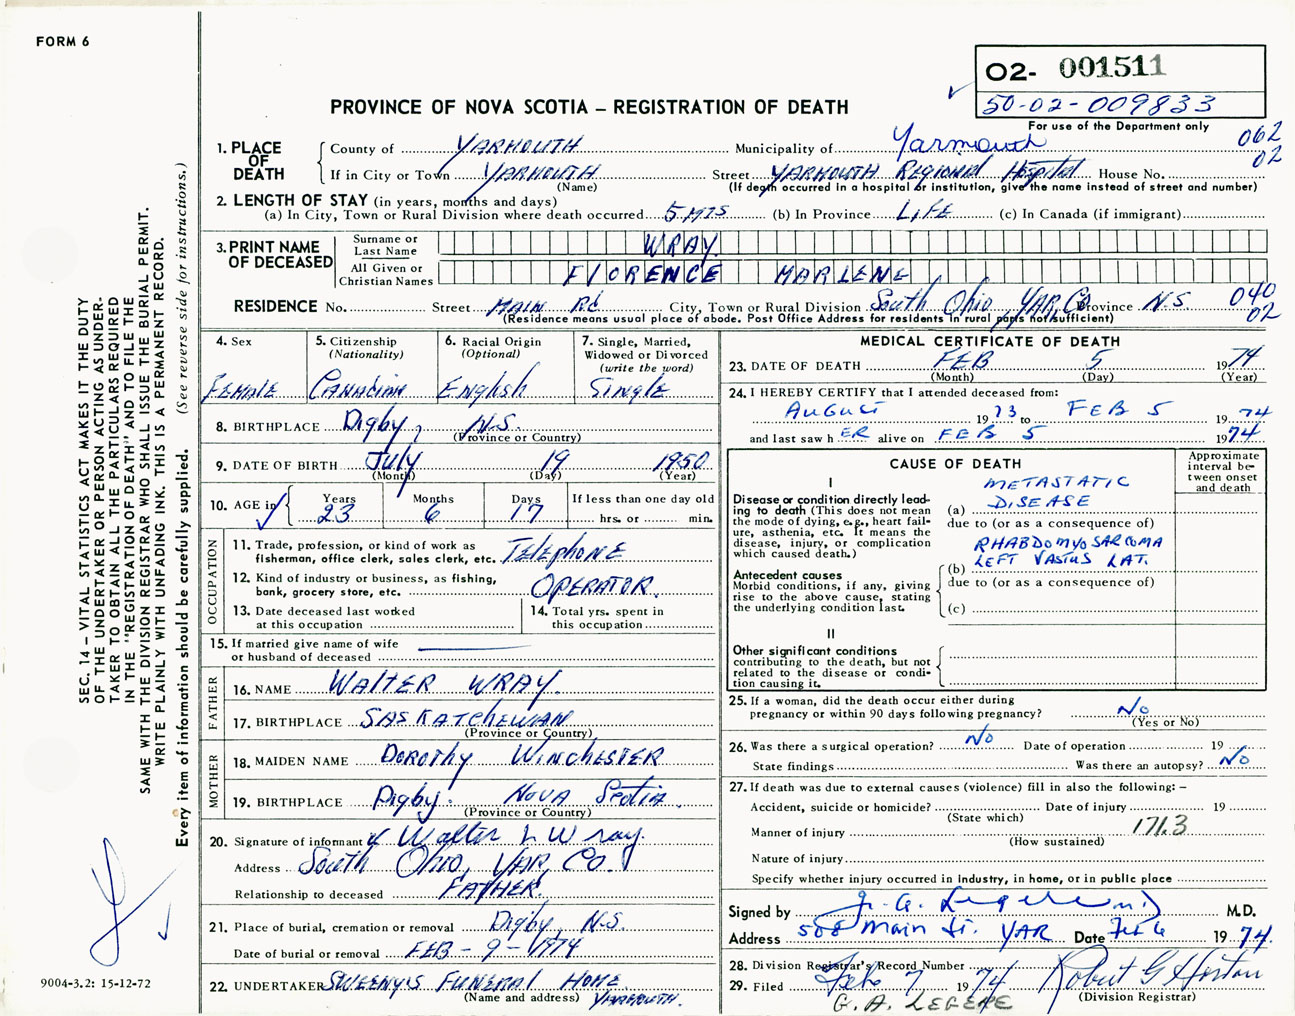 FORM 6
O2- 001511
50-02-009833
PROVINCE OF NOVA SCOTIA – REGISTRATION OF DEATH
For use of the Department only
1. PLACE OF DEATH
County of YARMOUTH Municipality of Yarmouth 062
If in City or Town YARMOUTH Street YARMOUTH REGIONAL Hospital House No. 02
(Name) (If death occurred in a hospital or institution, give the name instead of street and number)
2. LENGTH OF STAY (in years, months and days)
(a) In City, Town or Rural Division where death occurred 5 MTS (b) In Province LIFE (c) In Canada (if immigrant)
3. PRINT NAME OF DECEASED
Surname or Last Name WRAY
All Given or Christian Names FLORENCE MARLENE
RESIDENCE No. Street MAIN Rd City, Town or Rural Division South Ohio YAR, Co Province N.S. 040
(Residence means usual place of abode. Post Office Address for residents in rural parts not sufficient) 02
4. Sex FEMALE
5. Citizenship (Nationality) CANADIAN
6. Racial Origin (Optional) English
7. Single, Married, Widowed or Divorced (write the word) Single
8. BIRTHPLACE Digby, N.S.
(Province or Country)
9. DATE OF BIRTH July 19 1950
(Month) (Day) (Year)
10. AGE in Years 23 Months 6 Days 17 If less than one day old hrs. or min.
OCCUPATION
11. Trade, profession, or kind of work as fisherman, office clerk, sales clerk, etc. TELEPHONE
12. Kind of industry or business, as fishing, bank, grocery store, etc. OPERATOR.
13. Date deceased last worked at this occupation
14. Total yrs. spent in this occupation
15. If married give name of wife or husband of deceased
FATHER
16. NAME WALTER WRAY.
17. BIRTHPLACE SASKATCHEWAN
(Province or Country)
MOTHER
18. MAIDEN NAME DOROTHY WINCHESTER
19. BIRTHPLACE Digby. NOVA Scotia.
(Province or Country)
20. Signature of informant Walter L Wray.
Address South Ohio, YAR, Co.
Relationship to deceased FATHER.
21. Place of burial, cremation or removal Digby, N.S.
Date of burial or removal FEB - 9 - 1974
22. UNDERTAKER SWEENY'S FUNERAL HOME
(Name and address) YARMOUTH.
MEDICAL CERTIFICATE OF DEATH
23. DATE OF DEATH FEB 5 1974
(Month) (Day) (Year)
24. I HEREBY CERTIFY that I attended deceased from:
AUGUST 1973 to FEB 5 1974
and last saw hER alive on FEB 5 1974
CAUSE OF DEATH
Approximate interval between onset and death
I
Disease or condition directly leading to death (This does not mean the mode of dying, e.g., heart failure, asthenia, etc. It means the disease, injury, or complication which caused death.)
(a) METASTATIC DISEASE
due to (or as a consequence of)
Antecedent causes
Morbid conditions, if any, giving rise to the above cause, stating the underlying condition last.
(b) RHABDOMYOSARCOMA LEFT VASTUS LAT.
due to (or as a consequence of)
(c)
II
Other significant conditions contributing to the death, but not related to the disease or condition causing it.
25. If a woman, did the death occur either during pregnancy or within 90 days following pregnancy? No
(Yes or No)
26. Was there a surgical operation? No Date of operation 19
State findings Was there an autopsy? No
27. If death was due to external causes (violence) fill in also the following: –
Accident, suicide or homicide? Date of injury 19
(State which)
Manner of injury 171.3
(How sustained)
Nature of injury
Specify whether injury occurred in industry, in home, or in public place
Signed by G. A. Legere MD M.D.
Address 508 Main St. YAR Date Feb 6 1974.
28. Division Registrar's Record Number
29. Filed Feb 7 1974 Robert G Horton
(Division Registrar)
G. A. LEGERE
SEC. 14 – VITAL STATISTICS ACT MAKES IT THE DUTY
OF THE UNDERTAKER OR PERSON ACTING AS UNDER-
TAKER TO OBTAIN ALL THE PARTICULARS REQUIRED
IN THE "REGISTRATION OF DEATH" AND TO FILE THE
SAME WITH THE DIVISION REGISTRAR WHO SHALL ISSUE THE BURIAL PERMIT.
WRITE PLAINLY WITH UNFADING INK. THIS IS A PERMANENT RECORD.
Every item of information should be carefully supplied. (See reverse side for instructions.)
9004-3.2: 15-12-72